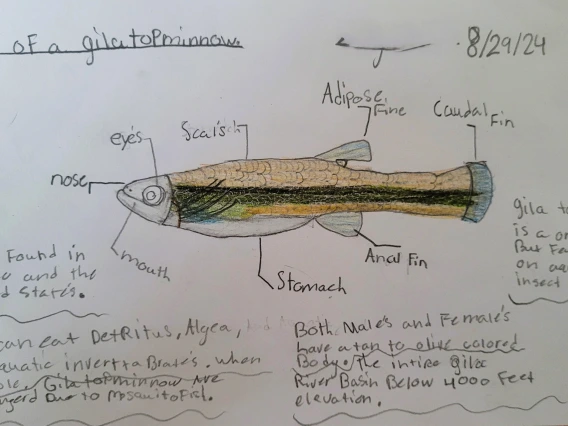 of a gilatopminnow.
8/29/24
Adipose
Fine
Caudal
Fin
eye's
Scal's
nose
mouth
Stomach
Anal Fin
Found in
and the
d States.
gila to
is a
But Fe
on
insect
can eat DetRitus, Algea,
quatic invertraBrate's. When
Gilatopminnow are
ngerd Due to MosquitoFish.
Both Male's and Female's
have a tan to olive colored
Body. The intire gila
River Basin Below 4000 Feet
elevation.